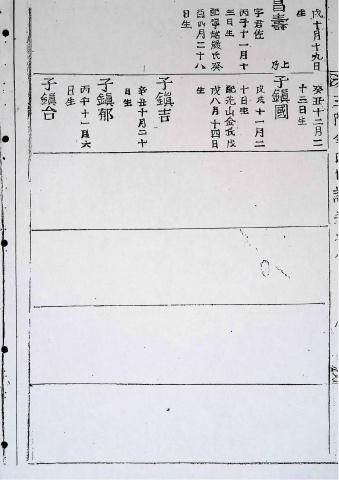 戊十月十九日
生
昌壽
字君佐
丙子十一月十
三日生
配寧越嚴氏癸
酉四月二十八
日生
癸丑十二月二
十三日生
子鎭國
戊戌十一月二
十日生
配光山金氏戊
戌八月十四日
生
子鎭吉
辛丑十月二十
日生
子鎭郁
丙申十一月六
日生
子鎭台